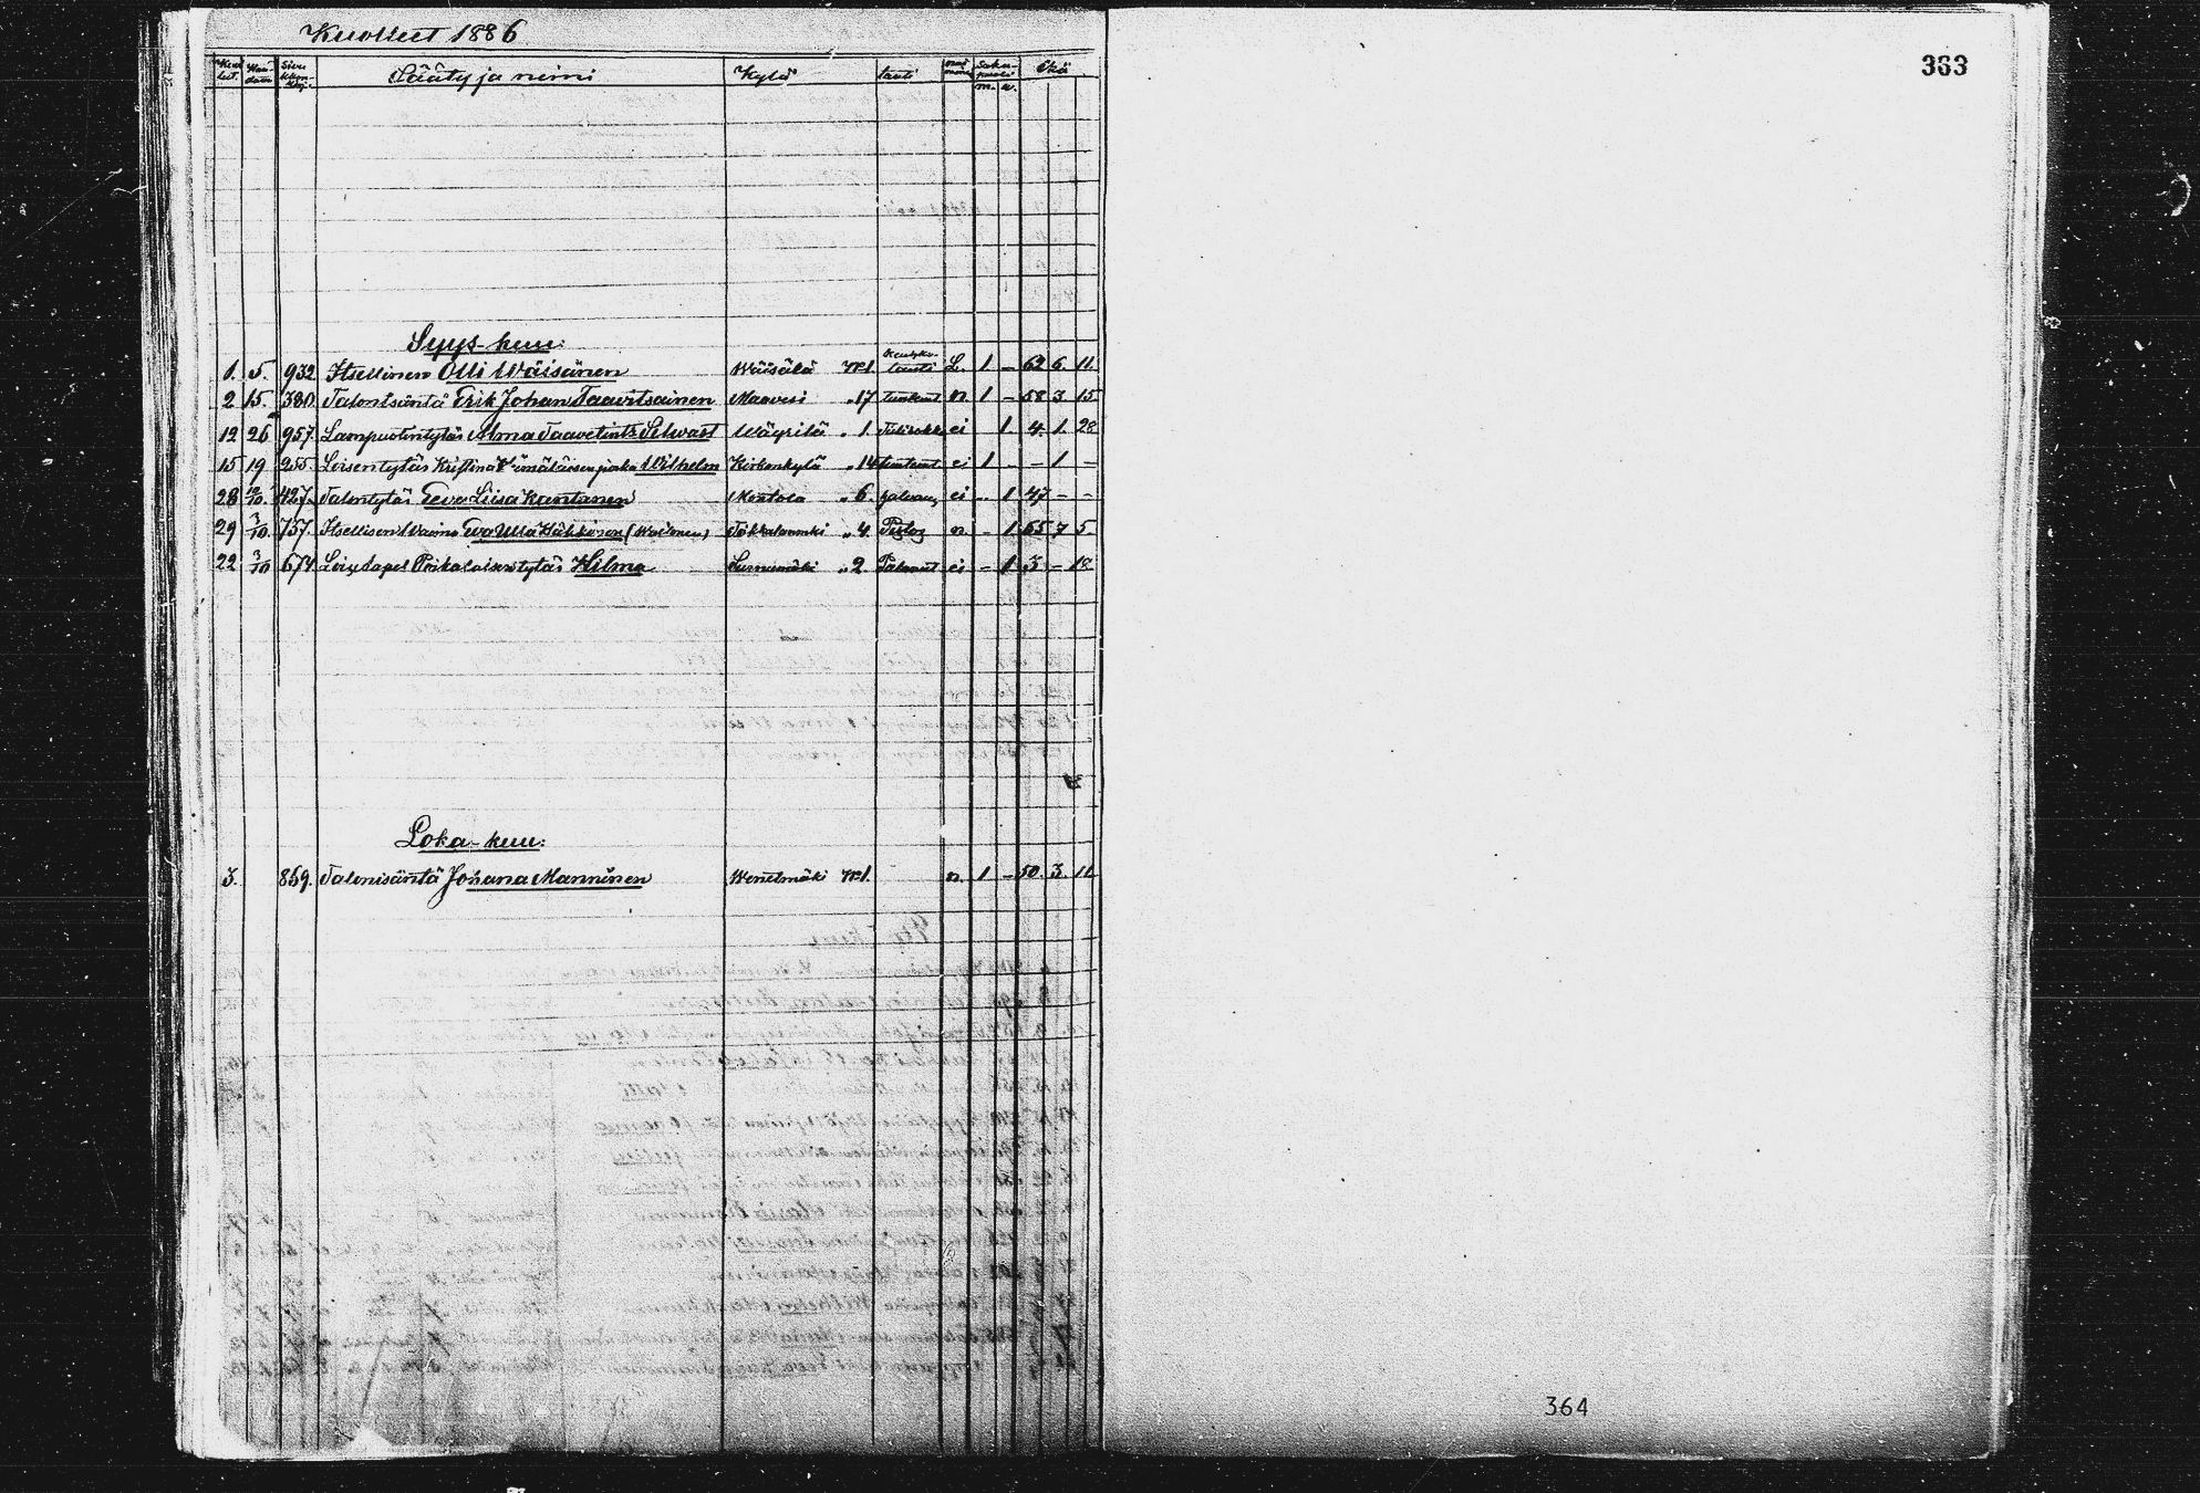 363
Kuolleet 1886
Kuol leet. Hau- dattu Sivu kkon- kirj. Sääty ja nimi Kylä tauti Suku- puoli Ikä
m. w.
Syys-kuu:
1. 5. 932 Itsellinen Olli Wäisänen Wäisälä № 1. Keuhko- tauti L. 1 – 62 6. 11.
2 15. 380 Talonisäntä Erik Johan Taavitsainen Maavesi „ 17 tuntemt n. 1 – 58 3. 15
12 26 957. Lampuotintytär Alma Taavetintr Selwast Wäyrilä „ 1. Tulirokko ei 1. 4. 1. 28
15 19 255. Loisentytär Kristina Hämäläisen poika Wilhelm Kirkonkylä „ 14 tuntemt ei 1 – – 1 –
28 12/10. 427. Talontytär Eeva Liisa Kantanen Montola „ 6. ei – 1 47 – –
29 3/10. 757. Itsellisen Waimo Eva Ulla Häkkinen Tökkälaanki „ 4. Pistos n. – 1 65 7 5.
22 3/10 674 Lois. Tapel Poikolaisen tytär Hilma Surnumäki „ 2 Palanut ei – 1 3 – 18
Loka-kuu:
3. 859. Talonisäntä Johana Manninen Wenetmäki № 1. n. 1 – 50. 3. 11
364